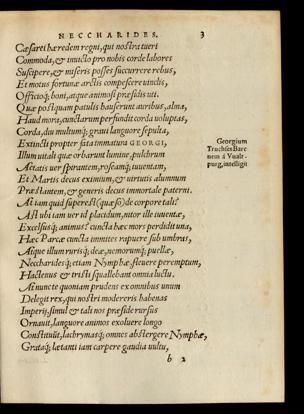 NECCHARIDES. 3
Cæsarei hæredem regni, qui nostra tueri
Commoda, & inuicto pro nobis corde labores
Suscipere, & miseris posses succurrere rebus,
Et motus fortunæ arctis compescere vinclis,
Officioq; boni, atque animosi præsidis vti.
Quæ postquam patulis hauserunt auribus, alma,
Haud mora, cunctarum perfundit corda voluptas,
Corda, diu multumq; graui languore sepulta,
Extincti propter fata immatura GEORGI,
Illum vitali quæ orbarunt lumine, pulchrum
Aetatis ver spirantem, roseamq; iuuentam,
Et Martis decus eximium, & virtutis alumnum
Præstantem, & generis decus immortale paterni.
At iam quid superest (quæso) de corpore tali?
Ast vbi iam ver id placidum, nitor ille iuuentæ,
Excelsusq; animus? cuncta hæc mors perdidit vna,
Hæc Parcæ cuncta immites rapuere sub vmbras,
Atque illum rurisq; deæ, nemorumq; puellæ,
Neccharidesq; etiam Nymphæ fleuere peremptum,
Hactenus & tristi squallebant omnia luctu.
At nunc te quoniam prudens ex omnibus vnum
Delegit rex, qui nostri modereris habenas
Imperij, simul & tali nos præside rursus
Ornauit, languore animos exoluere longo
Constituit, lachrymasq; omnes abstergere Nymphæ,
Grataq; lætanti iam carpere gaudia vultu,
b 2
Georgium
Truchses Baro
nem à Vualt-
purg, intelligit